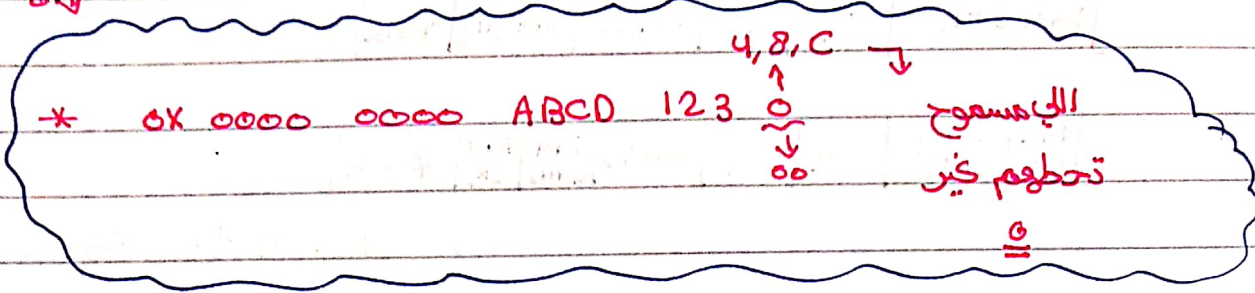 4, 8, C
* 0X 0000 0000 ABCD 123 0
00
اللي مسموح
تحطهم غير
0